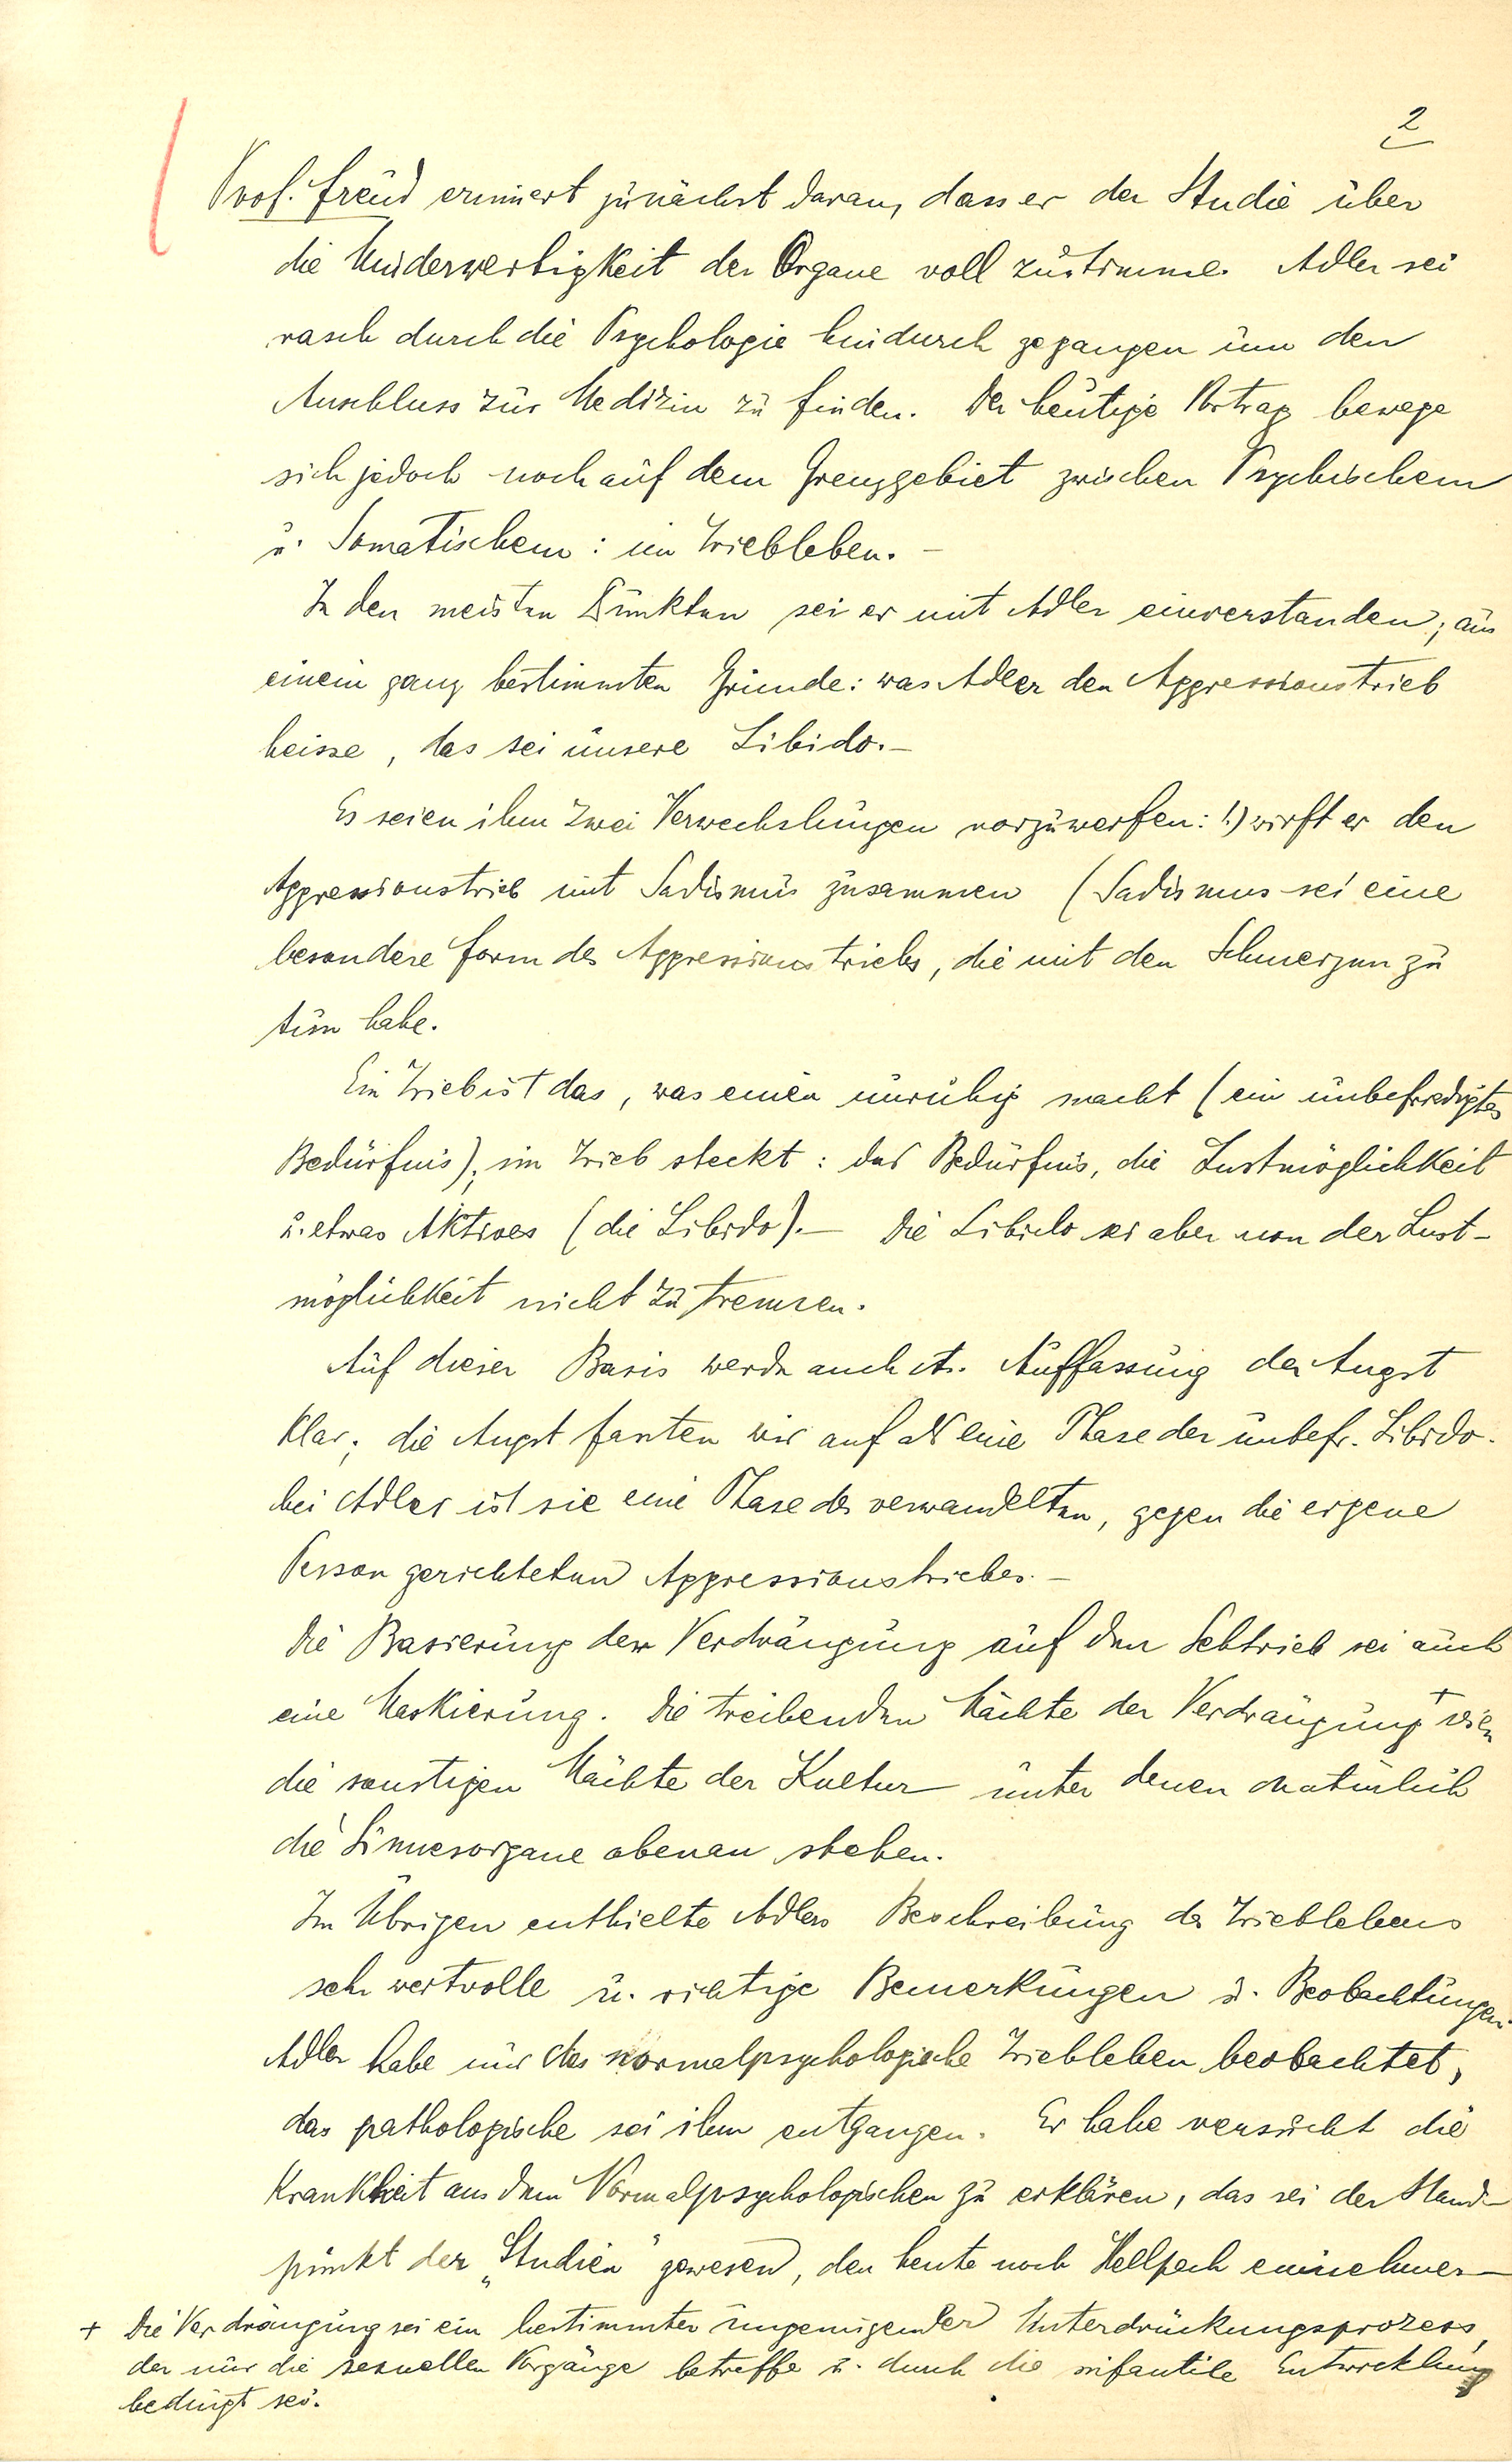 2
Prof. Freud erinnert zunächst daran, dass er der Studie über
die Minderwertigkeit der Organe voll zustimme. Adler sei
rasch durch die Psychologie hindurch gegangen um den
Anschluss zur Medizin zu finden. Der heutige Vortrag bewege
sich jedoch noch auf dem Grenzgebiet zwischen Psychischem
u. Somatischem: im Triebleben. –
In den meisten Punkten sei er mit Adler einverstanden; aus
einem ganz bestimmten Grunde: was Adler den Aggressionstrieb
heisse, das sei unsere Libido. –
Es seien ihm zwei Verwechslungen vorzuwerfen: 1.) wirft er den
Aggressionstrieb mit Sadismus zusammen (Sadismus sei eine
besondere Form des Aggressionstriebs, die mit den Schmerzen zu
tun habe.
Ein Trieb ist das, was einen unruhig macht (ein unbefriedigtes
Bedürfnis); im Trieb steckt: das Bedürfnis, die Lustmöglichkeit
u. etwas Aktives (die Libido). – Die Libido sei aber von der Lust-
möglichkeit nicht zu trennen.
Auf dieser Basis werde auch A's. Auffassung der Angst
klar; die Angst fassten wir auf als eine Phase der unbefr. Libido.
bei Adler ist sie eine Phase des verwandelten, gegen die eigene
Person gerichteten Aggressionstriebes. –
Die Basierung der Verdrängung auf den Sehtrieb sei auch
eine Maskierung. Die treibenden Mächte der Verdrängung + seien
die sonstigen Mächte der Kultur unter denen natürlich
die Sinnesorgane obenan stehen.
Im Übrigen enthielte Adlers Beschreibung des Trieblebens
sehr wertvolle u. richtige Bemerkungen u. Beobachtungen.
Adler habe nur das normalpsychologische Triebleben beobachtet,
das pathologische sei ihm entgangen. Er habe versucht die
Krankheit aus dem Normalpsychologischen zu erklären, das sei der Stand-
punkt der „Studien" gewesen, den heute noch Hellpach einnehme. –
+ Die Verdrängung sei ein bestimmter ungenügender Unterdrückungsprozess,
der nur die sexuellen Vorgänge betreffe u. durch die infantile Entwicklung
bedingt sei.